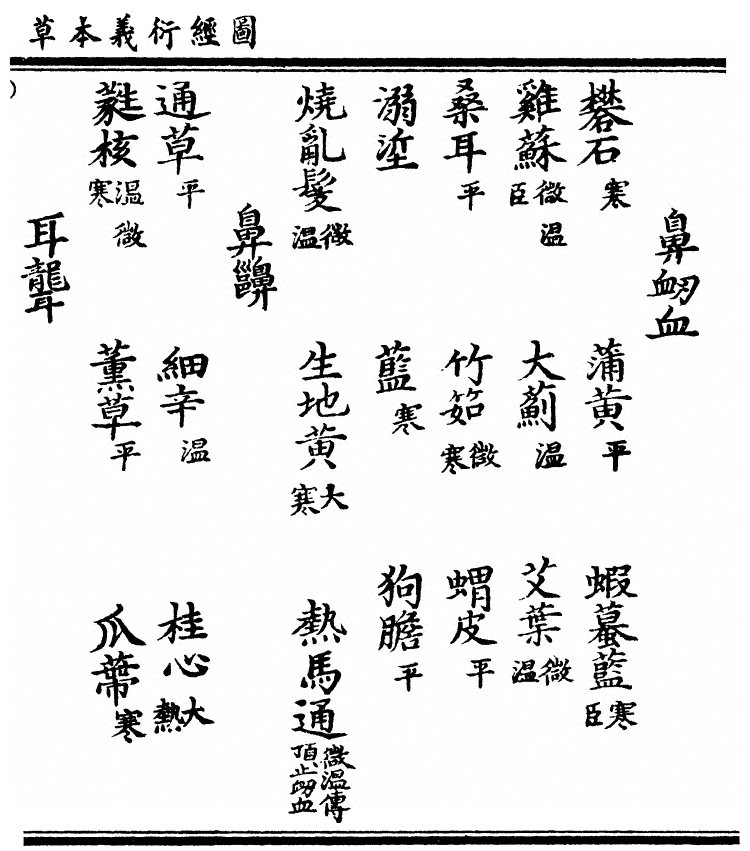 圖經衍義本草
鼻衂血
礬石 寒 蒲黄 平 蝦蟇藍 寒臣
雞蘇 微温臣 大薊 温 艾葉 微温
桑耳 平 竹筎 微寒 蝟皮 平
溺垽 藍 寒 狗膽 平
燒亂髮 微温 生地黄 大寒 熱馬通 微温傳頂止衂血
鼻齆
通草 平 細辛 温 桂心 大熱
蕤核 温微寒 薰草 平 瓜蔕 寒
耳聾